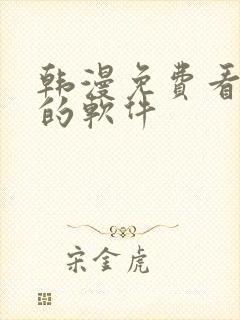 韩漫免费看
的软件
宋金虎